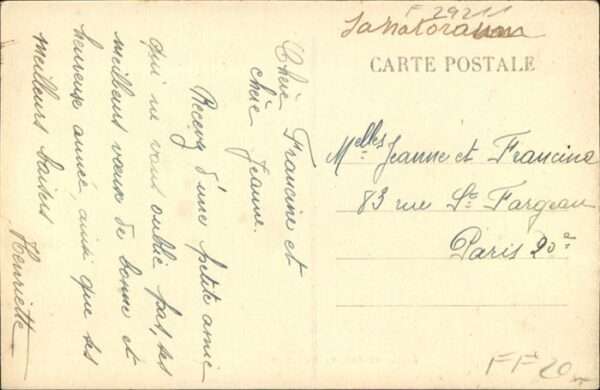 F 29211
Sanatorium
CARTE POSTALE
Chère Francine et
chère Jeanne.
Recevez d'une petite amie
qui ne vous oublie pas, ses
meilleurs vœux de bonne et
heureuse année, ainsi que ses
meilleurs baisers
Henriette
Melles Jeanne et Francine
83 rue St. Fargeau
Paris 20e
FF 20